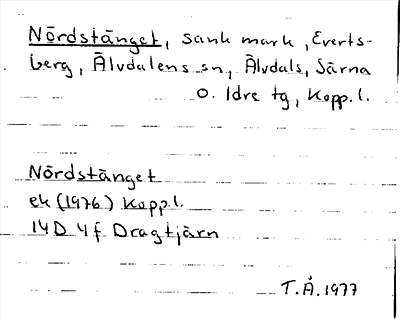 Nördstänget, sank mark, Everts-
berg, Älvdalens sn, Älvdals, Särna
o. Idre tg, Kopp. l.
Nördstänget
ek (1976) Kopp. l.
14D 4f Dragtjärn
T.Å. 1977